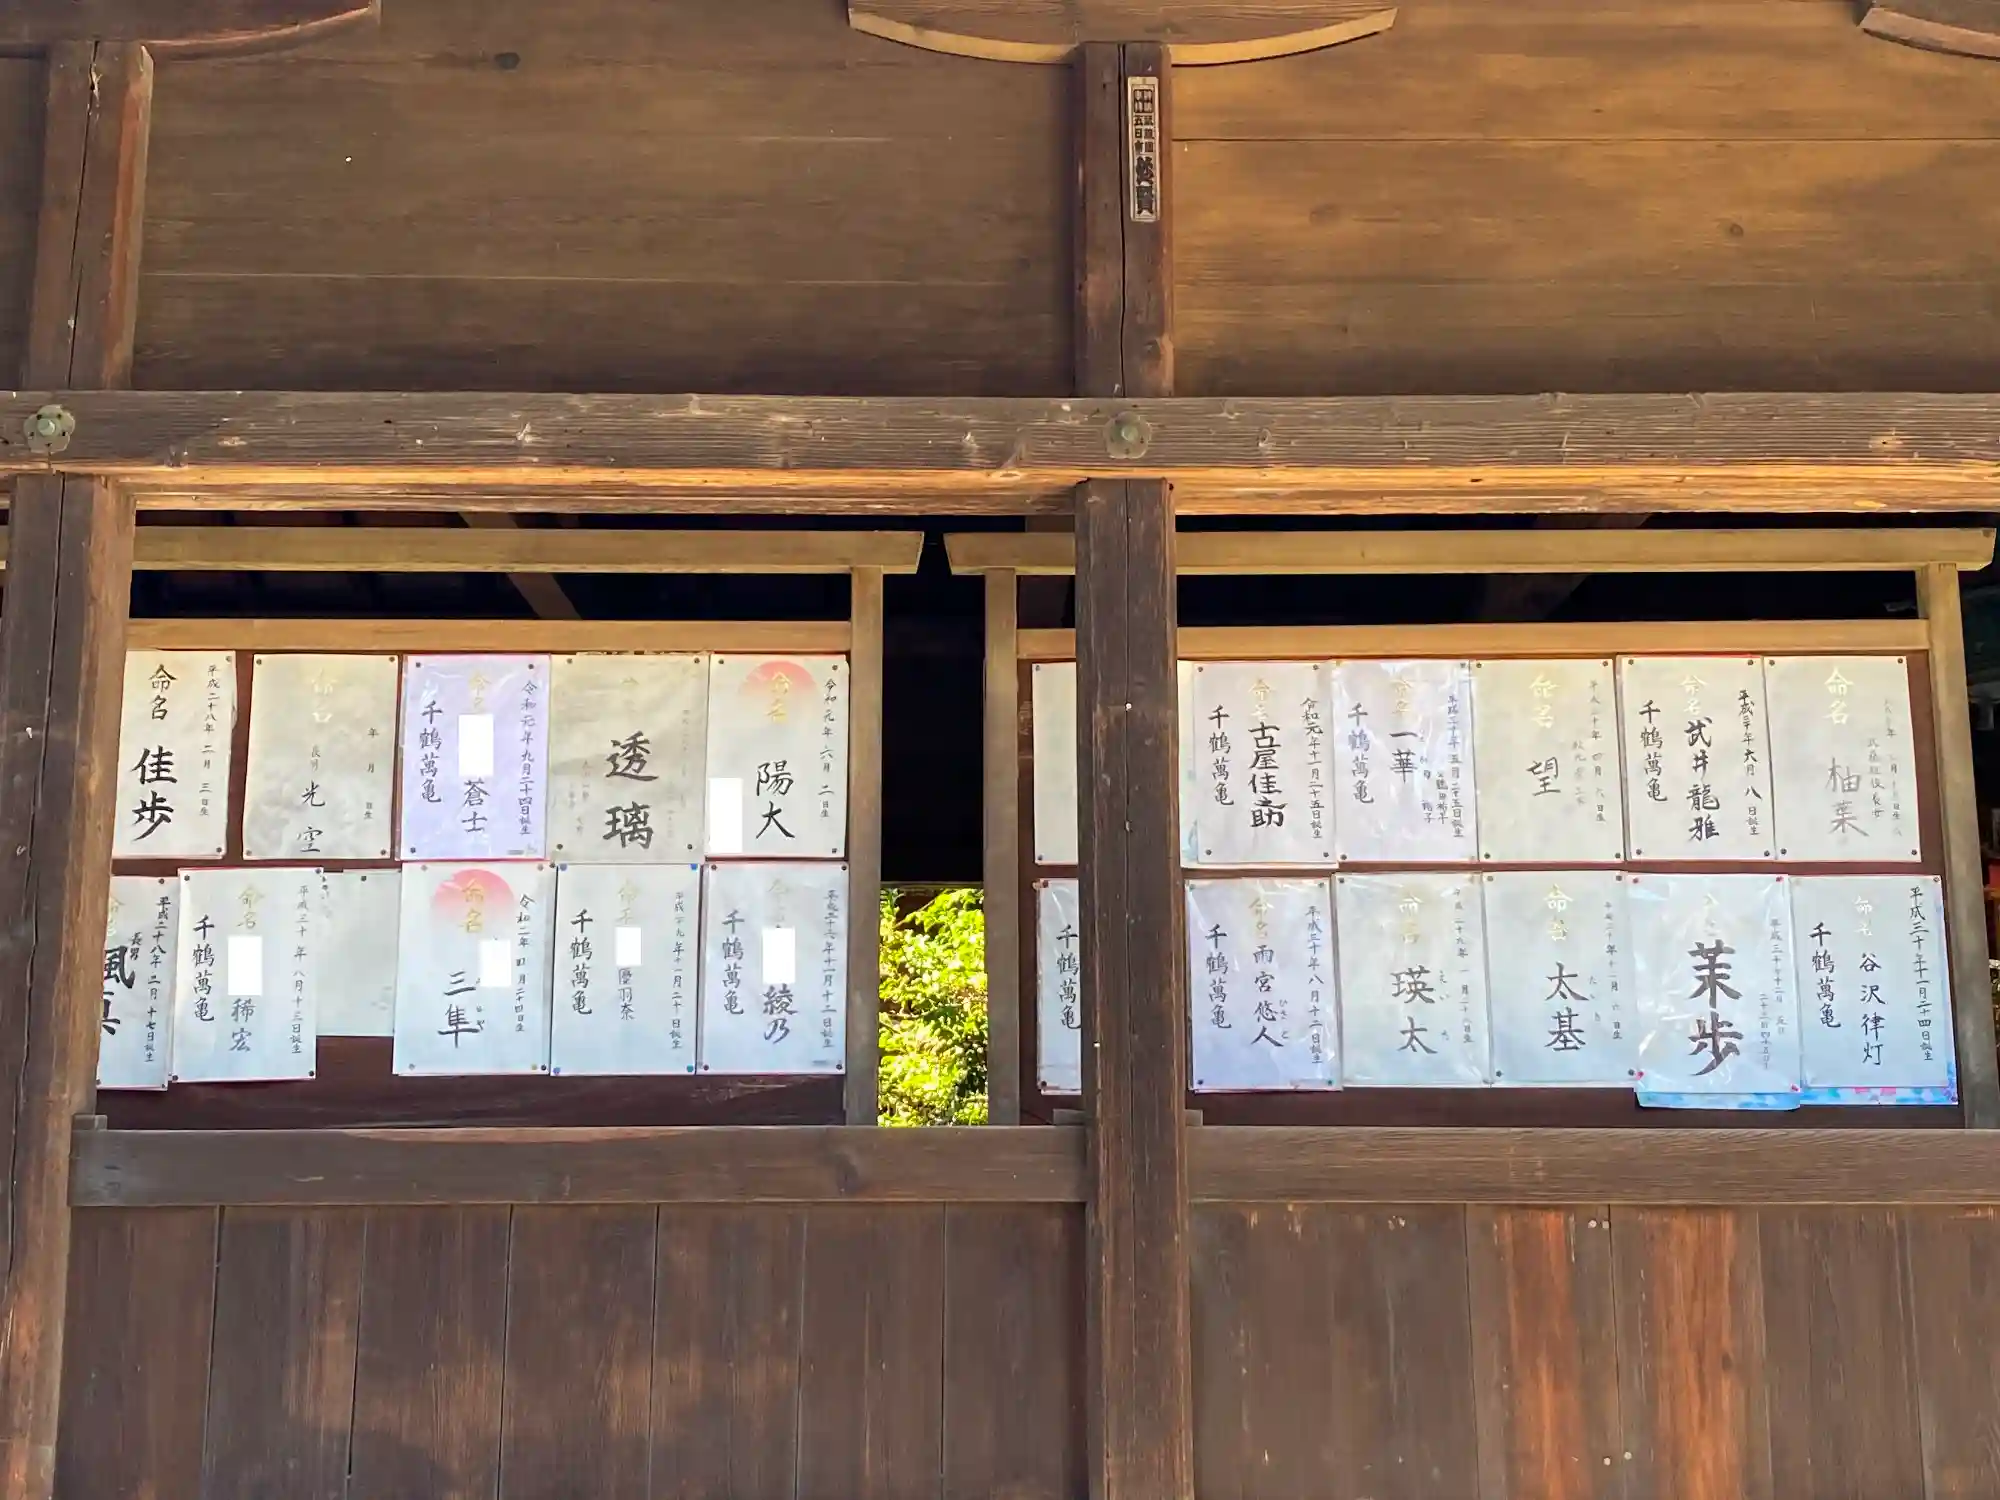 五日市
命名
平成二十八年 二月 三 日生
佳歩
命名
年 月 日生
長男
光空
令和元年九月二十四日誕生
蒼士
千鶴萬亀
透璃
命名
令和元年 六月 二 日生
陽大
平成二十八年 二月 十七日誕生
長男
命名
平成三十年 八月十三日誕生
稀宏
千鶴萬亀
命名
令和二年 四月二十四日生
三隼
命名
年十一月二十日誕生
優羽奈
千鶴萬亀
平成二十六年十一月十二日誕生
綾乃
千鶴萬亀
命名
令和元年十一月二十五日誕生
古屋佳之助
千鶴萬亀
年五月二十五日誕生
一華
千鶴萬亀
命名
年 四月 六 日生
望
命名
平成三十年六月 八 日誕生
武井龍雅
千鶴萬亀
命名
柚葉
千鶴萬亀
命名
平成三十年 八月十二日誕生
雨宮悠人
ひさと
千鶴萬亀
命名
平成二十九年 一月二十八日生
瑛太
えいた
命名
平成三十年十一月 六 日生
太基
たいき
茉歩
命名
平成三十年十一月二十四日誕生
谷沢律灯
千鶴萬亀